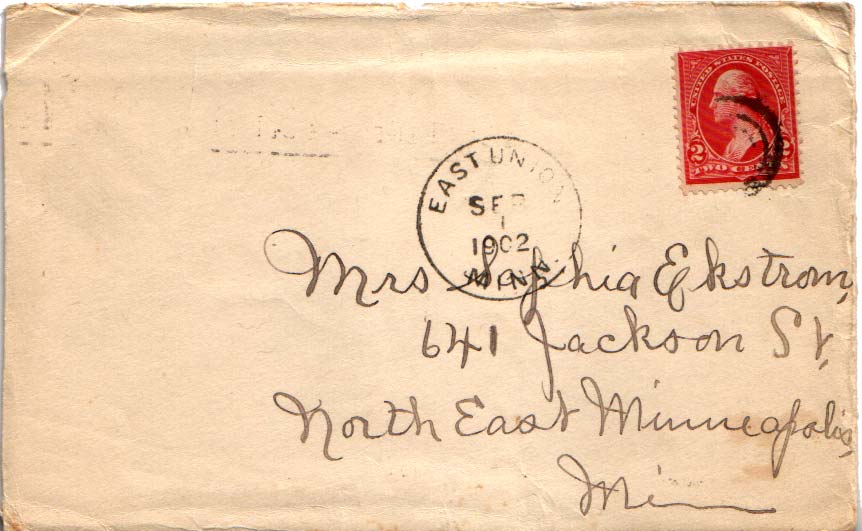 UNITED STATES POSTAGE
2 2
TWO CENTS
EAST UNION
SEP
1
1902
MINN.
Mrs Sophia Ekstrom,
641 Jackson St,
North East Minneapolis,
Minn